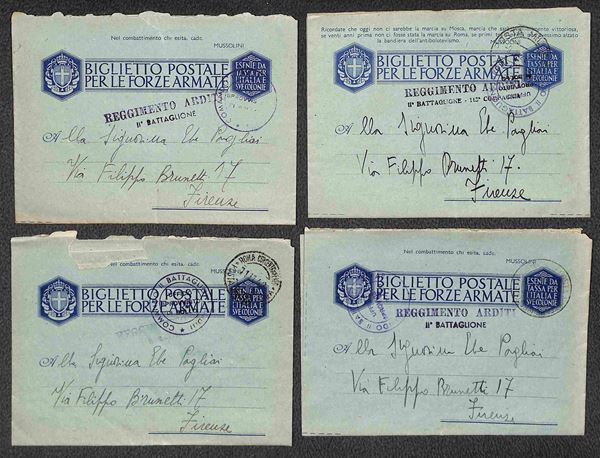 Nel combattimento chi esita, cade.
MUSSOLINI
BIGLIETTO POSTALE
PER LE FORZE ARMATE
ESENTE DA
TASSA PER
L'ITALIA E
SUE COLONIE
REGGIMENTO ARDITI
IIº BATTAGLIONE
Alla Signorina Ebe Pagliai
Via Filippo Brunetti 17
Firenze
Ricordate che oggi non ci sarebbe la marcia su Mosca, marcia che
vittoriosa,
se venti anni prima non ci fosse stata la marcia su Roma, se primi
alzato
la bandiera dell'antibolscevismo.
BIGLIETTO POSTALE
PER LE FORZE ARMATE
L'ITALIA E
SUE COLONIE
REGGIMENTO ARDITI
IIº BATTAGLIONE - COMPAGNIA
Alla Signorina Ebe Pagliai
Via Filippo Brunetti 17.
Firenze
Nel combattimento chi esita, cade.
MUSSOLINI
BIGLIETTO POSTALE
PER LE FORZE ARMATE
ESENTE DA
TASSA PER
L'ITALIA E
SUE COLONIE
II BATTAGLIONE
ROMA
Alla Signorina Ebe Pagliai
Via Filippo Brunetti 17
Firenze
Nel combattimento chi esita, cade.
MUSSOLINI
BIGLIETTO POSTALE
PER LE FORZE ARMATE
ESENTE DA
TASSA PER
L'ITALIA E
SUE COLONIE
REGGIMENTO ARDITI
IIº BATTAGLIONE
Alla Signorina Ebe Pagliai
Via Filippo Brunetti 17
Firenze